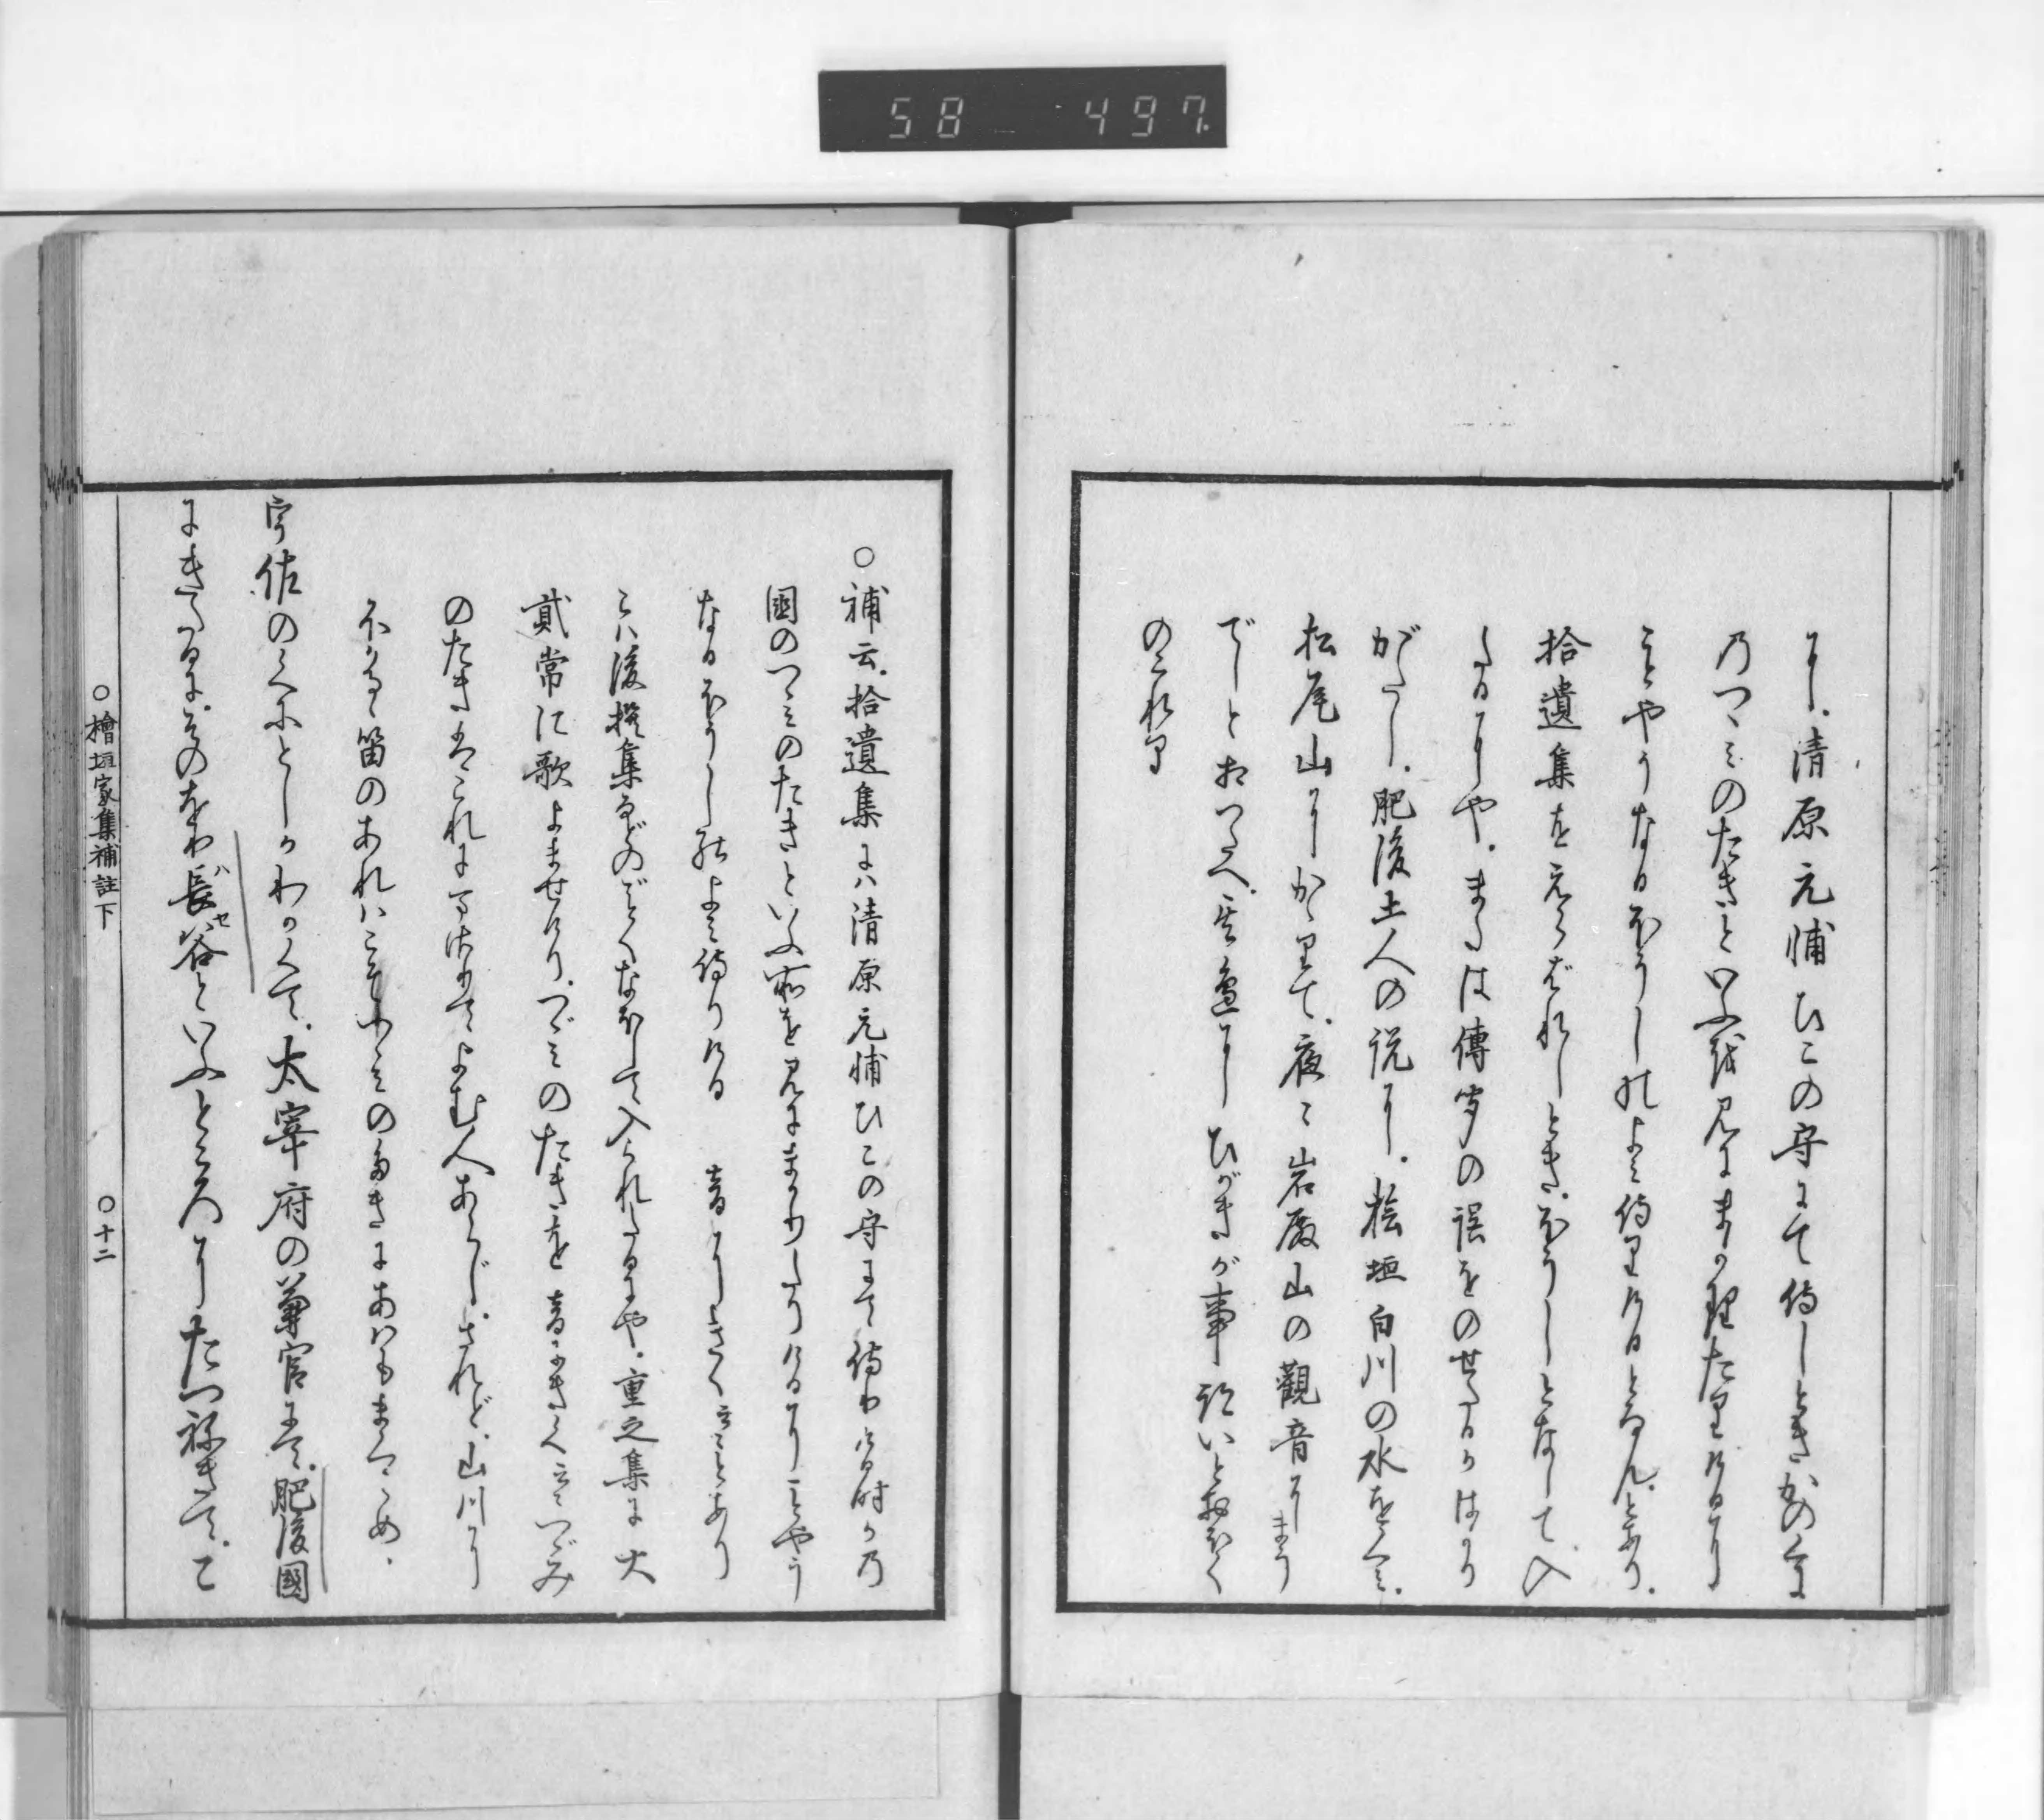 58 497
に。清原元輔ひこの守にて侍しときかの国
乃つゝみのたきといふ所見にまかりたりけるに
ことやうなるほうしのよみ侍りけるとなん。とあり。
拾遺集をえらばれしとき。ほうしとなして入
たるにや。または傳写の誤をのせたるかはかり
がたし。肥後土人の説に。桧垣白川の水をくみ。
松尾山にかゝりて。夜々岩殿山の觀音にまう
でしといつたへ。其邊にひがきが事跡いとおほく
のこれり
○補云。拾遺集には清原元輔ひこの守にて侍りける時かの
國のつゝみのたきといふ所を見にまかりたりけるにことやう
なるほうしのよみ侍りける 音にきく云々とあり
こは後撰集などのごとくなほして入られたるにや。重之集に大
貳常に歌よませけり。つゞみのたきを 音にきく云々つゞみ
のたきはこれにまさりてよむ人あらじ。されど。山川に
笛のあれはこそ
宇佐のくにとしかわかくて。太宰府の菊官にて。肥後國
にきたるに。そのをり長谷といふところにたつねきて。こ
ハセ
○檜垣家集補註下 ○十二